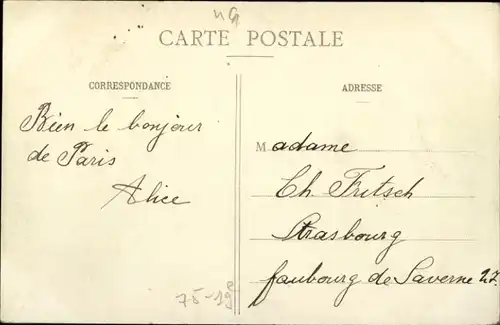 CARTE POSTALE
CORRESPONDANCE
ADRESSE
Bien le bonjour
de Paris
Alice
Madame
Ch Fritsch
Strasbourg
faubourg de Saverne 27
75-19e